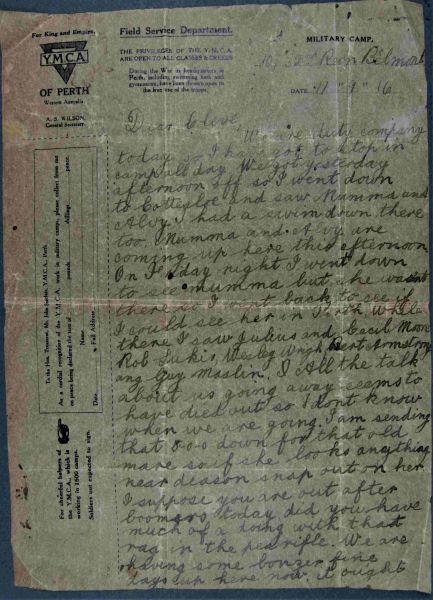 For King and Empire.
Y.M.C.A.
OF PERTH
Western Australia
A. S. WILSON,
General Secretary.
Field Service Department.
THE PRIVILEGES OF THE Y.M.C.A.
ARE OPEN TO ALL CLASSES & CREEDS
During the War its headquarters in
Perth, including swimming bath and
gymnasium, have been thrown open to
the free use of the troops.
MILITARY CAMP,
DATE 16
Dear Clive
We are duty company
today so I have got to stop in
camp all day. We got yesterday
afternoon off so I went down
to Cottesloe and saw Mumma and
Alvy. I had a swim down there
too. Mumma and Alvy are
coming up here this afternoon
On Friday night I went down
to see mumma but she wasnt
there so I went back to see if
I could see her in Perth. While
there I saw Julius and Cecil Moore
Rob Lukis, Wesley Wright Bert Armstrong
and Guy Maslin. All the talk
about us going away seems to
have died out so I dont know
when we are going. I am sending
that down for that old
mare so if she looks anything
near season snap out on her
I suppose you are out after
boomers today did you have
much of a doing with that
rag in the pea rifle. We are
having some bonzer fine
days up here now it ought
To the Hon. Treasurer, Mr. John Lochh, Y.M.C.A., Perth.
As a cordial recognition of the Y.M.C.A. work in military camps, please collect from me
on peace being declared the sum of pounds shillings pence.
Name
Full Address
Date
For cheerful helpers of
the Y.M.C.A. which is
working in 1500 camps.
Soldiers not expected to sign.